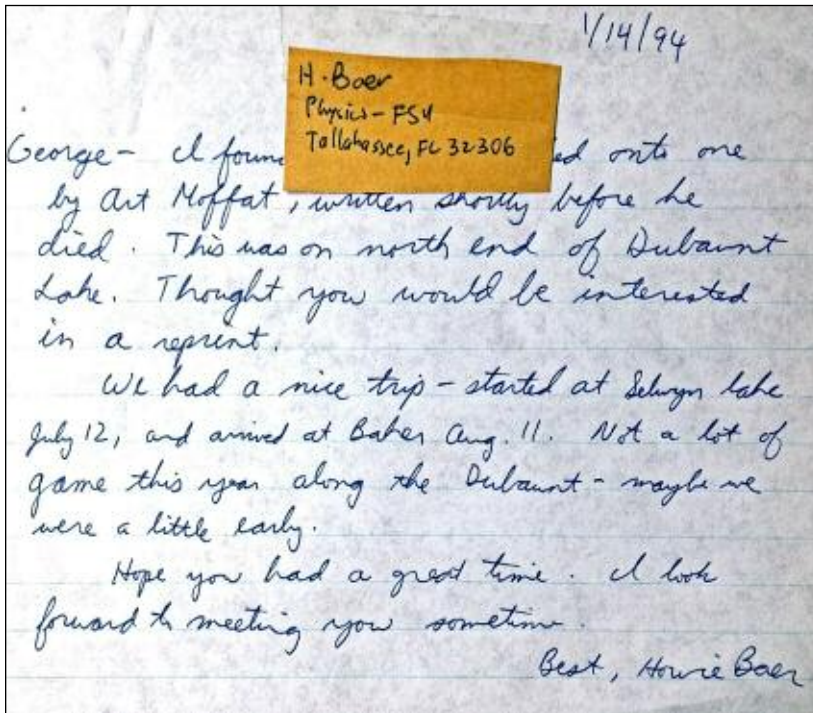 1/14/94
H. Baer
Physics - FSU
Tallahassee, FL 32306
George - I foun
ed onto one
by Art Moffat, written shortly before he
died. This was on north end of Dubaunt
Lake. Thought you would be interested
in a reprint.
We had a nice trip - started at Selwyn lake
July 12, and arrived at Baker Aug. 11. Not a lot of
game this year along the Dubaunt - maybe we
were a little early.
Hope you had a great time. I look
forward to meeting you sometime.
Best, Howie Baer